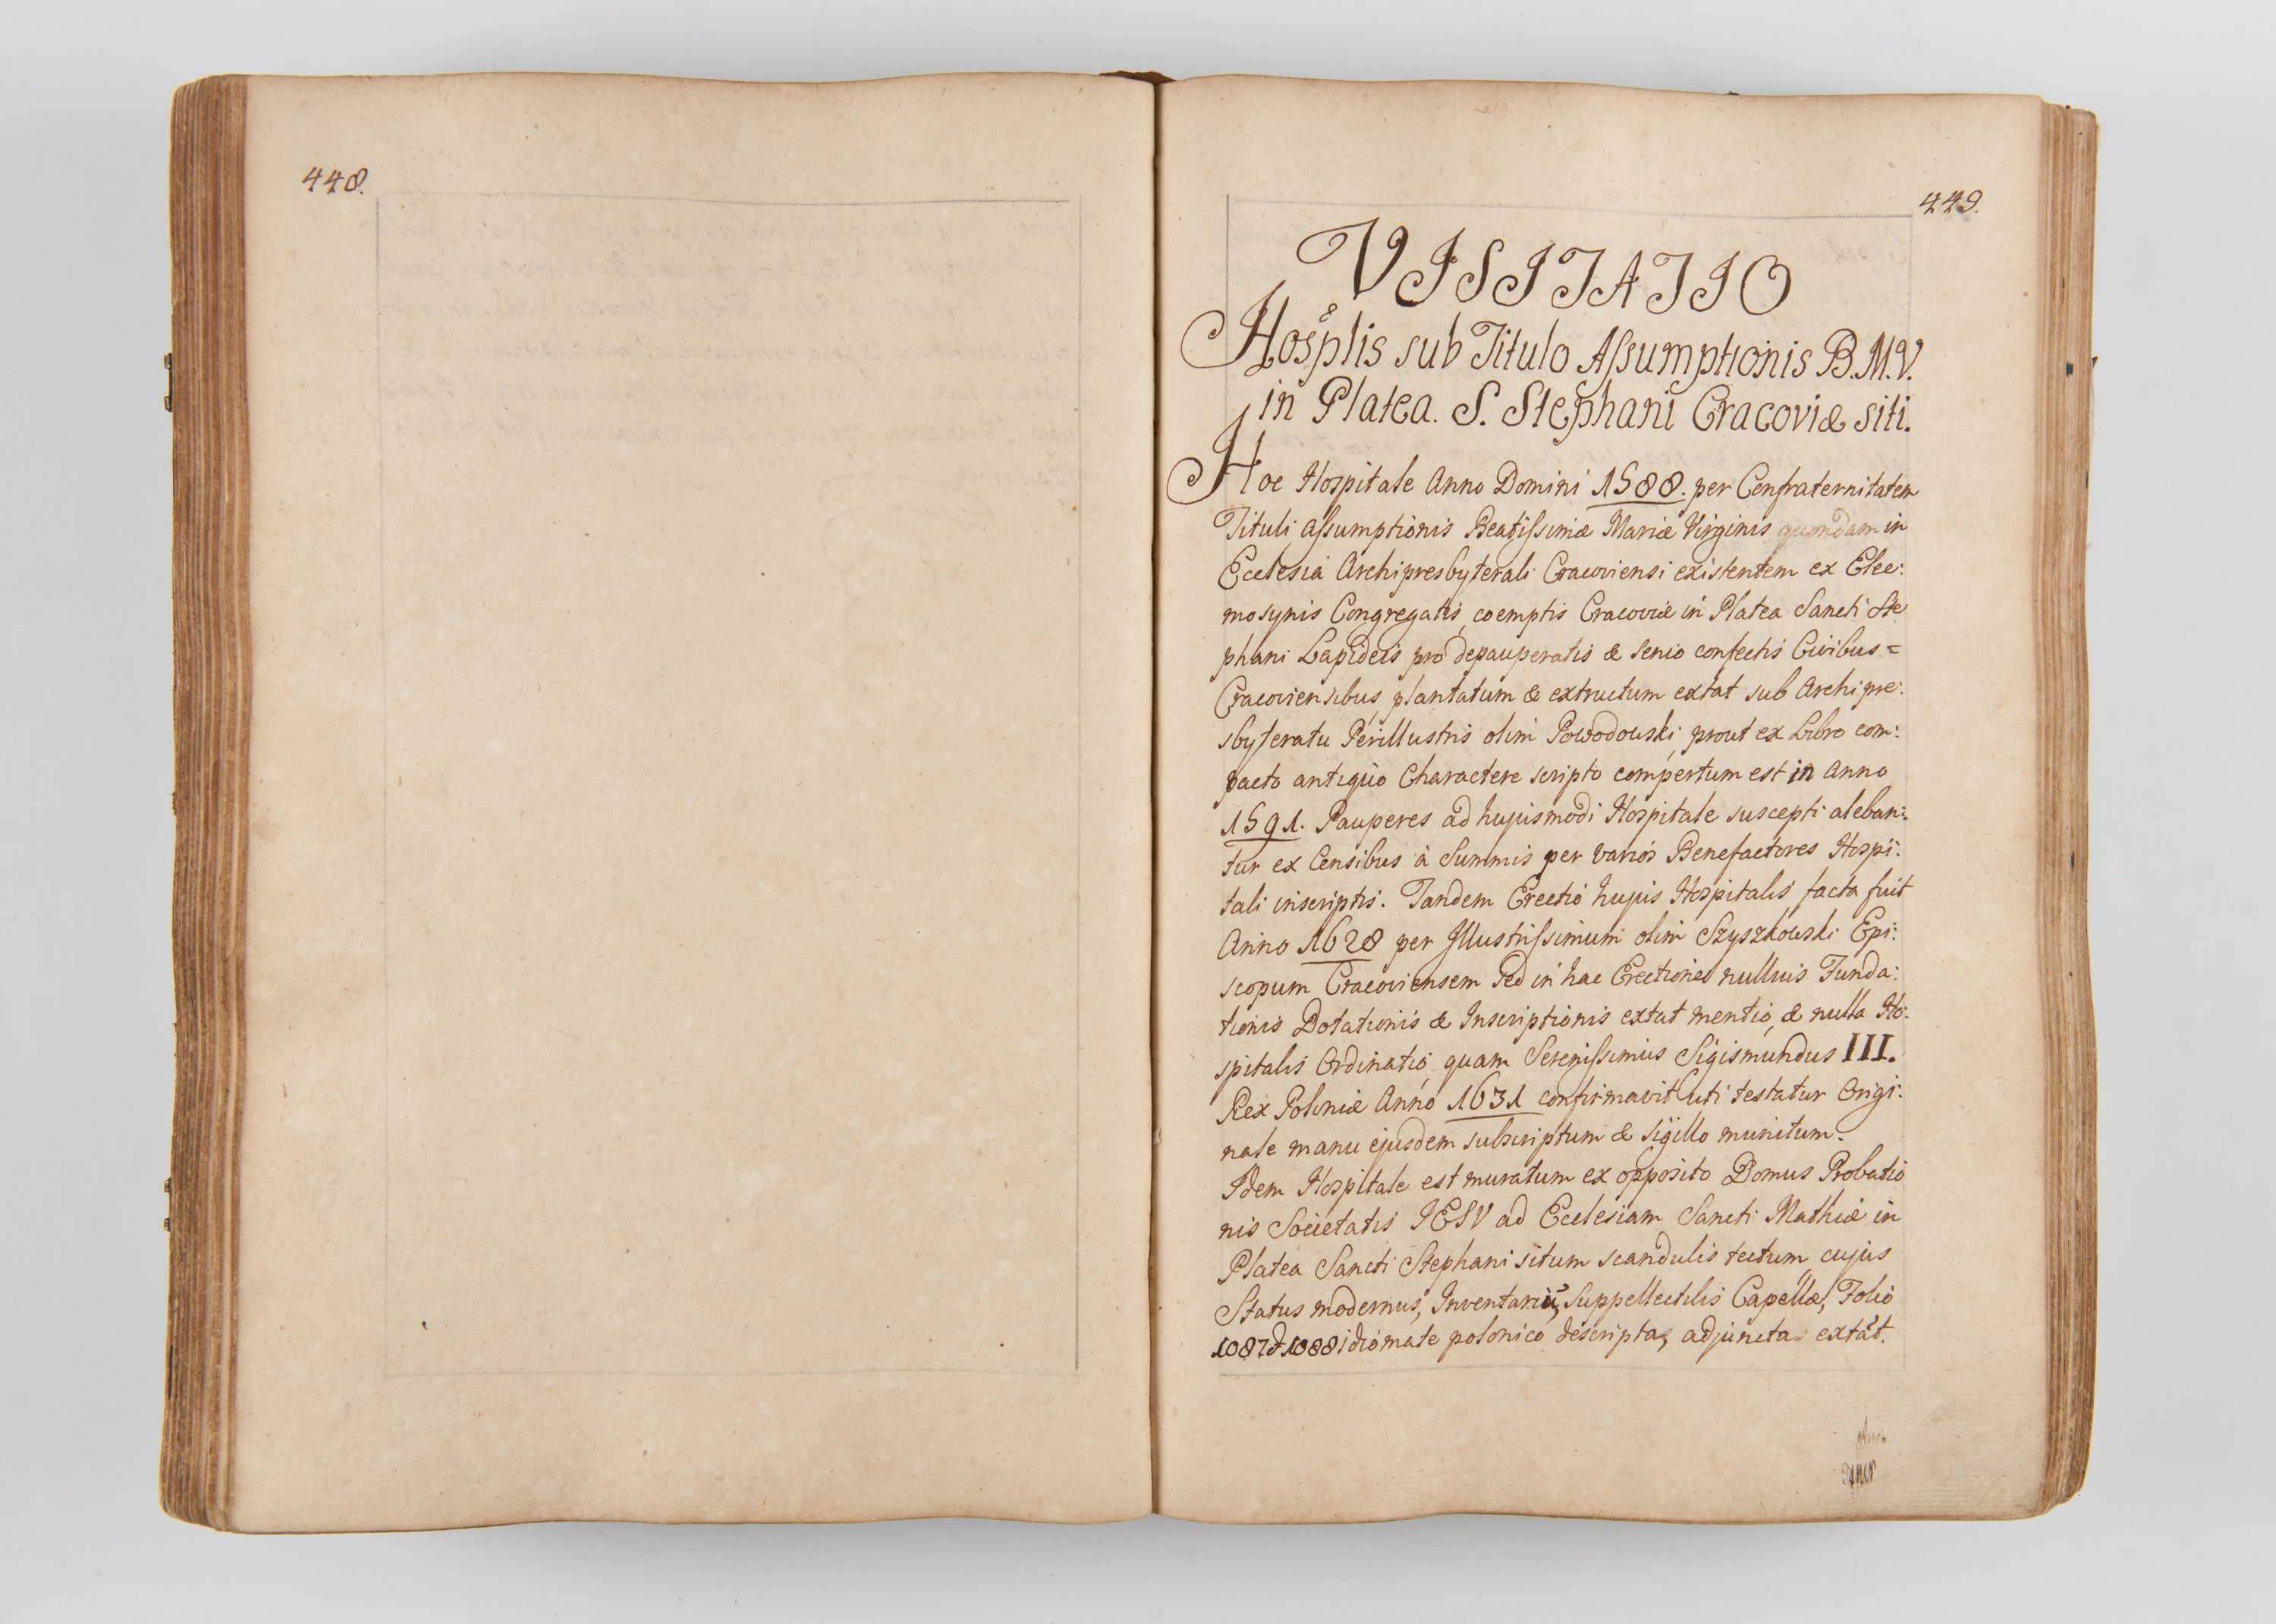 448.
449.
VISITATIO
Hosplis sub Titulo Assumptionis B.M.V.
in Platea. S. Stephani Cracoviæ siti.
Hoc Hospitale Anno Domini 1588. per Confraternitatem
Tituli Assumptionis Beatissimæ Mariæ Virginis quondam in
Ecclesia Archipresbyterali Cracoviensi existentem ex Elee:
mosynis Congregatis, coemptis Cracoviæ in Platea Sancti Ste
phani Lapideis pro depauperatis & senio confectis Civibus =
Cracoviensibus, plantatum & extructum extat sub Archipre:
sbyteratu Perillustris olim Powodowski, prout ex Libro com:
pacto antiquo Charactere scripto compertum est in Anno
1591. Pauperes ad hujusmodi Hospitale suscepti aleban:
tur ex Censibus à Summis per varios Benefactores Hospi:
tali inscriptis. Tandem Erectio hujus Hospitalis facta fuit
Anno 1628 per Illustrissimum olim Szyszkowski Epi:
scopum Cracoviensem sed in hac Erectione nullius Funda:
tionis Dotationis & Inscriptionis extat mentio, & nulla Ho:
spitalis Ordinatio, quam Serenissimus Sigismundus III.
Rex Poloniæ Anno 1631 confirmavit uti testatur Origi:
nale manu ejusdem subscriptum & sigillo munitum.
Idem Hospitale est muratum ex opposito Domus Probatio
nis Societatis IESV ad Ecclesiam Sancti Mathiæ in
Platea Sancti Stephani situm scandulis tectum, cujus
Status modernus, Suppellectilis Capellæ, Folio
1087 & 1088 idiomate polonico descripta, adjuncta extat.